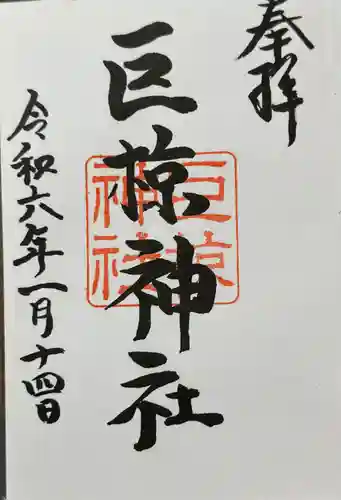 奉拝
巨椋神社
巨椋神社
令和六年一月十四日